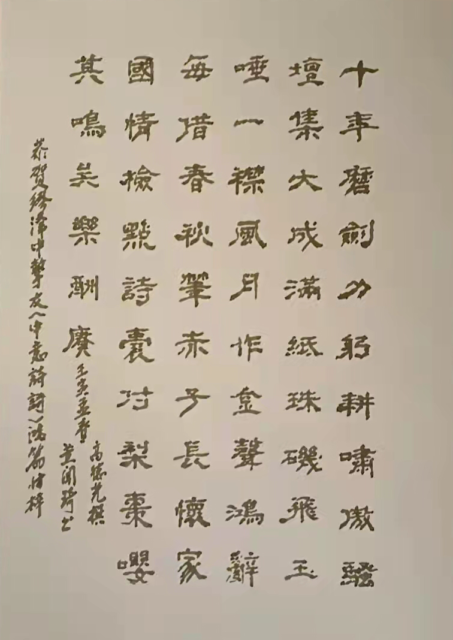 十年磨劍力躬耕嘯傲騷
壇集大成滿紙珠磯飛玉
唾一襟風月作金聲鴻辭
每借春秋筆赤子長懷家
國情檢點詩囊付梨棗嚶
其鳴矣樂酬賡
壬寅孟春
高德光撰
黄開琦书
恭贺中友人中意詩詞鴻篇付梓